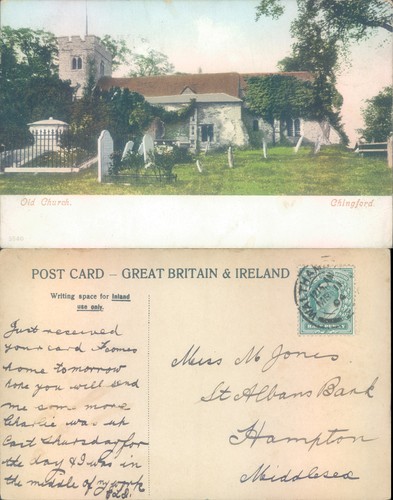 Old Church.
Chingford.
POST CARD – GREAT BRITAIN & IRELAND
Writing space for Inland
use only.
HALFPENNY
Just received
your card
home tomorrow
hope you will send
me some more
Charlie was up
last Thursday for
the day & I was in
the middle of my work
Miss M Jones
St Albans Bank
Hampton
Middlesex